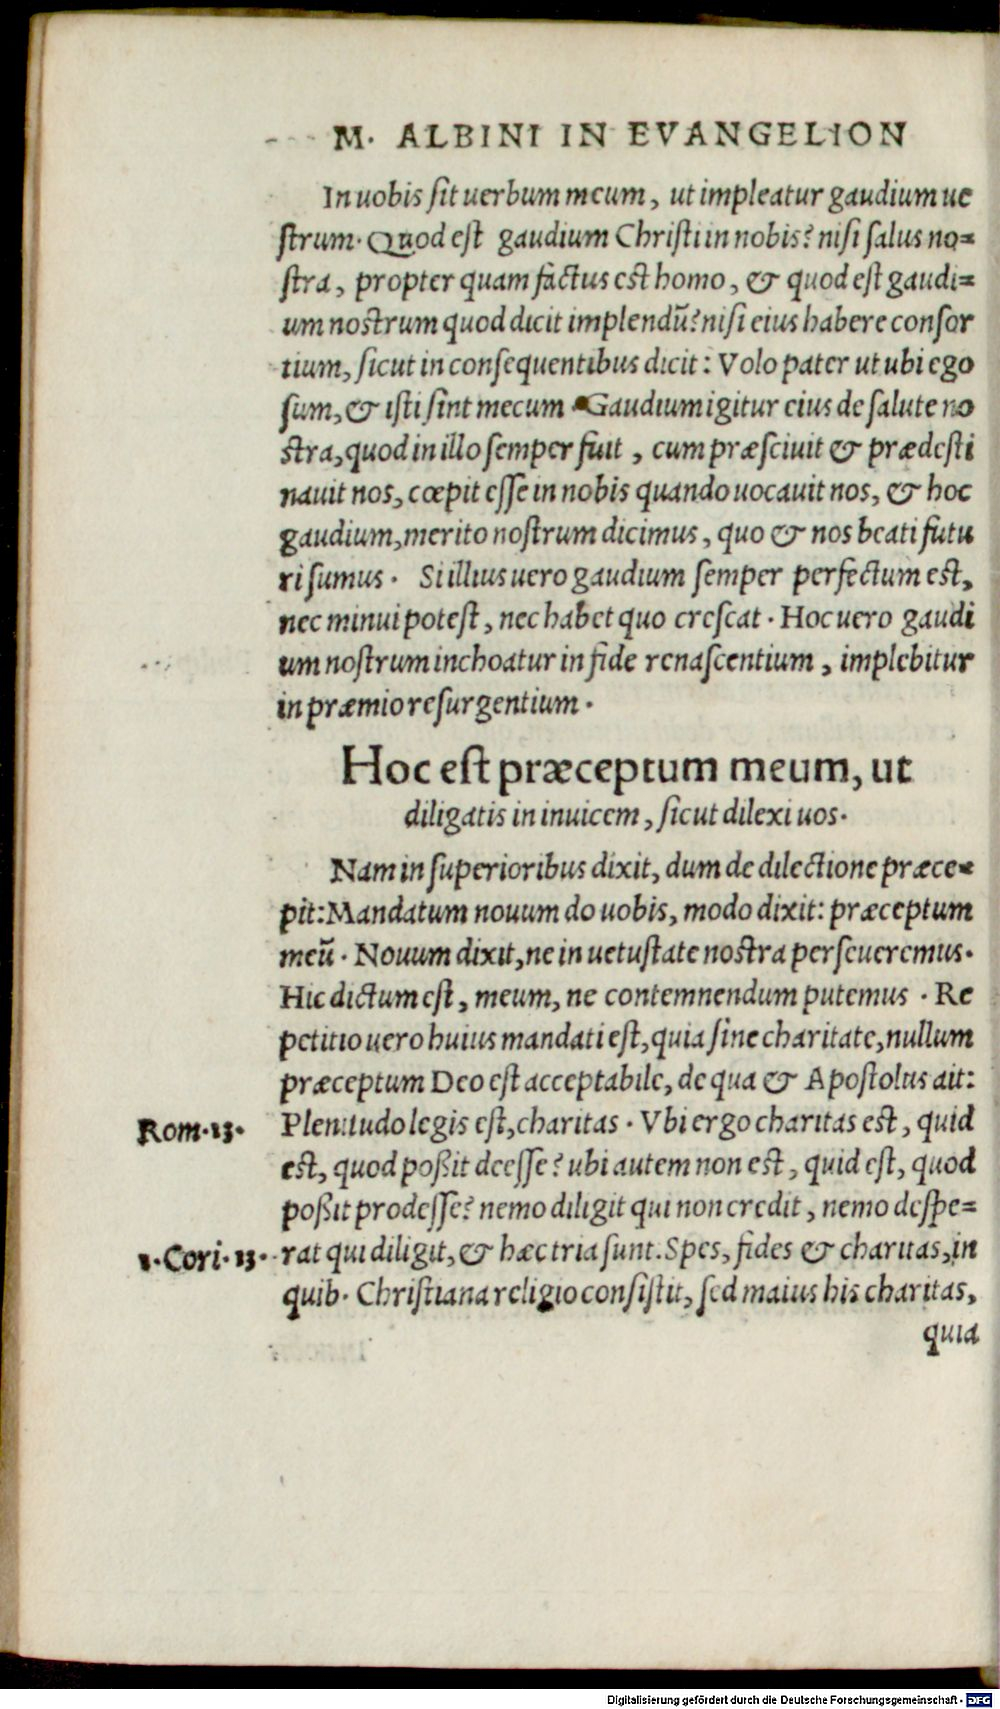 M. ALBINI IN EVANGELION
In uobis sit uerbum meum, ut impleatur gaudium ue
strum. Quod est gaudium Christi in nobis? nisi salus no=
stra, propter quam factus est homo, & quod est gaudi=
um nostrum quod dicit implendũ? nisi eius habere consor
tium, sicut in consequentibus dicit: Volo pater ut ubi ego
sum, & isti sint mecum. Gaudium igitur eius de salute no
stra, quod in illo semper fuit, cum præsciuit & prædesti
nauit nos, cœpit esse in nobis quando uocauit nos, & hoc
gaudium, merito nostrum dicimus, quo & nos beati futu
ri sumus. Si illius uero gaudium semper perfectum est,
nec minui potest, nec habet quo crescat. Hoc uero gaudi
um nostrum inchoatur in fide renascentium, implebitur
in præmio resurgentium.
Hoc est præceptum meum, ut
diligatis in inuicem, sicut dilexi uos.
Nam in superioribus dixit, dum de dilectione præce=
pit: Mandatum nouum do uobis, modo dixit: præceptum
meũ. Nouum dixit, ne in uetustate nostra perseueremus.
Hic dictum est, meum, ne contemnendum putemus. Re
petitio uero huius mandati est, quia sine charitate, nullum
præceptum Deo est acceptabile, de qua & Apostolus ait:
Rom. 13. Plenitudo legis est, charitas. Vbi ergo charitas est, quid
est, quod poßit deesse? ubi autem non est, quid est, quod
poßit prodesse? nemo diligit qui non credit, nemo despe=
1. Cori. 13. rat qui diligit, & hæc tria sunt. Spes, fides & charitas, in
quib. Christiana religio consistit, sed maius his charitas,
quia
Digitalisierung gefördert durch die Deutsche Forschungsgemeinschaft - DFG